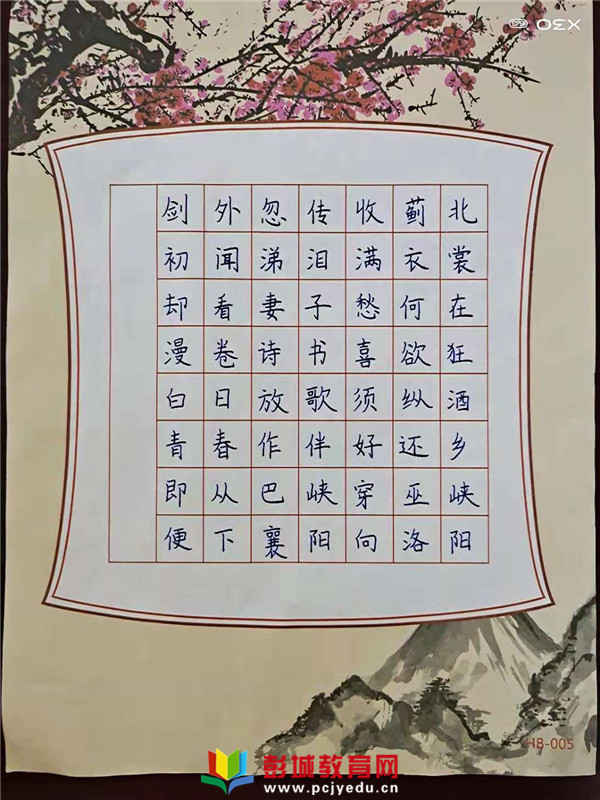 剑外忽传收蓟北
初闻涕泪满衣裳
却看妻子愁何在
漫卷诗书喜欲狂
白日放歌须纵酒
青春作伴好还乡
即从巴峡穿巫峡
便下襄阳向洛阳
HB-005
彭城教育网
www.pcjyedu.cn